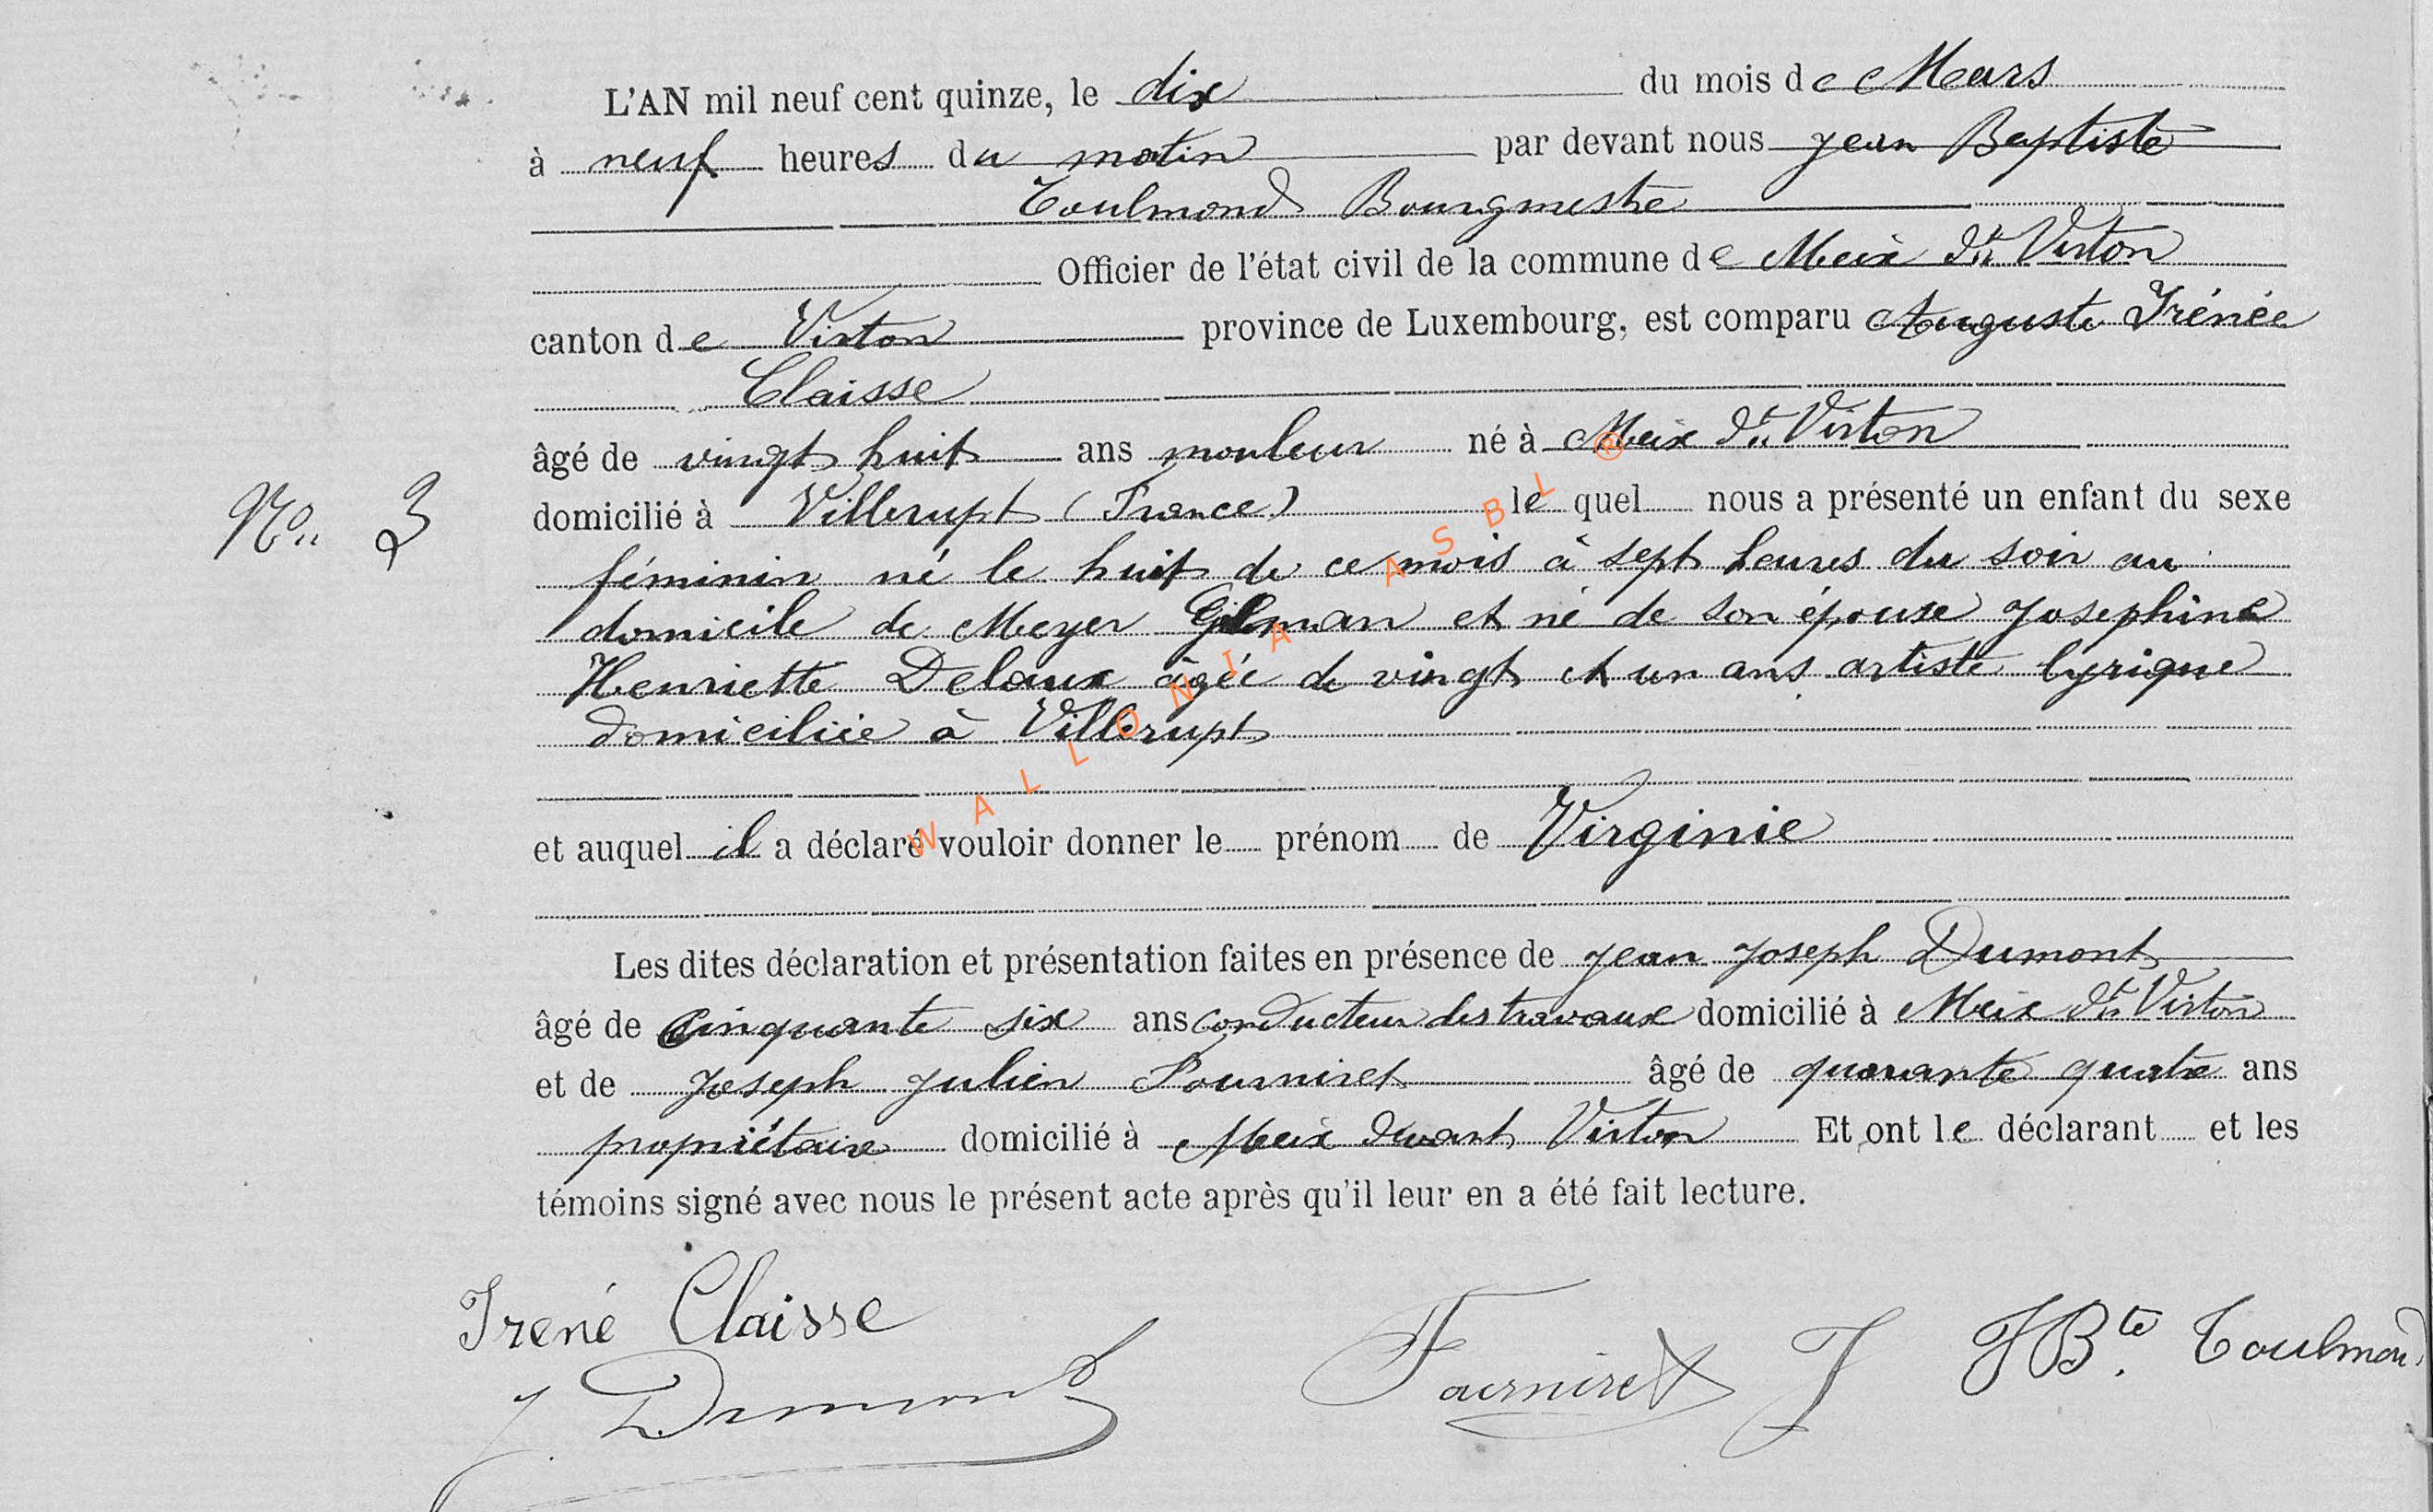 L'AN mil neuf cent quinze, le dix du mois de Mars
à neuf heures du matin par devant nous Jean Baptiste
Toulmond Bourgmestre
Officier de l'état civil de la commune de Meix dt Virton
canton de Virton province de Luxembourg, est comparu Auguste Irénée
Claisse
âgé de vingt huit ans mouleur né à Meix dt Virton
No 3
domicilié à Villerupt (France) lequel nous a présenté un enfant du sexe
féminin né le huit de ce mois à sept heures du soir au
domicile de Meyer Gilman et né de son épouse Josephine
Henriette Delaux âgée de vingt et un ans artiste lyrique
domiciliée à Villerupt
et auquel il a déclaré vouloir donner le prénom de Virginie
Les dites déclaration et présentation faites en présence de Jean Joseph Dumont
âgé de cinquante six ans conducteur des travaux domicilié à Meix dt Virton
et de Joseph Julien Fourniret âgé de quarante quatre ans
propriétaire domicilié à Meix devant Virton Et ont le déclarant et les
témoins signé avec nous le présent acte après qu'il leur en a été fait lecture.
Irené Claisse
J. Dumont
Fourniret J
JBte Toulmond
WALLONIA ASBL ®